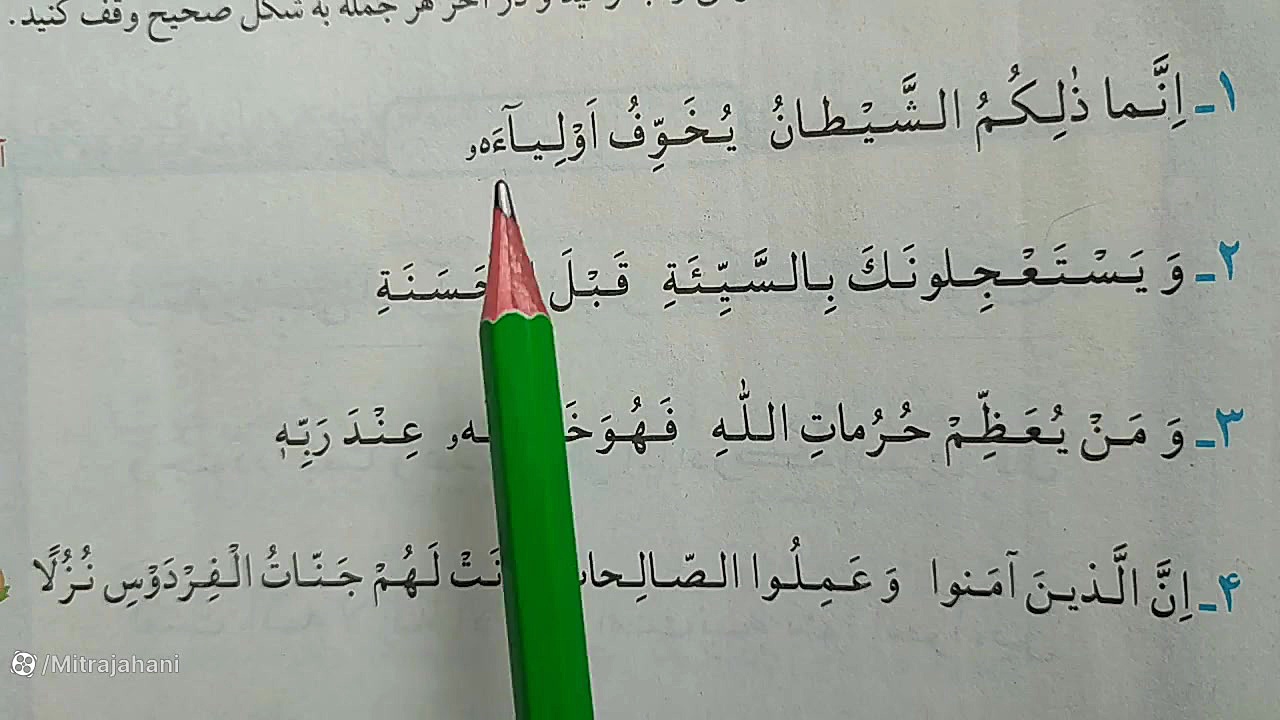 در آخر هر جمله به شکل صحیح وقف کنید.
۱ـ اِنَّما ذٰلِکُمُ الشَّیْطانُ یُخَوِّفُ اَوْلِیآءَهُۥ
۲ـ وَ یَسْتَعْجِلونَکَ بِالسَّیِّئَةِ قَبْلَ
۳ـ وَ مَنْ یُعَظِّمْ حُرُماتِ اللّٰهِ عِنْدَ رَبِّهٖ
۴ـ اِنَّ الَّذینَ آمَنوا وَ عَمِلُوا لَهُمْ جَنّاتُ الْفِرْدَوْسِ نُزُلًا
/Mitrajahani